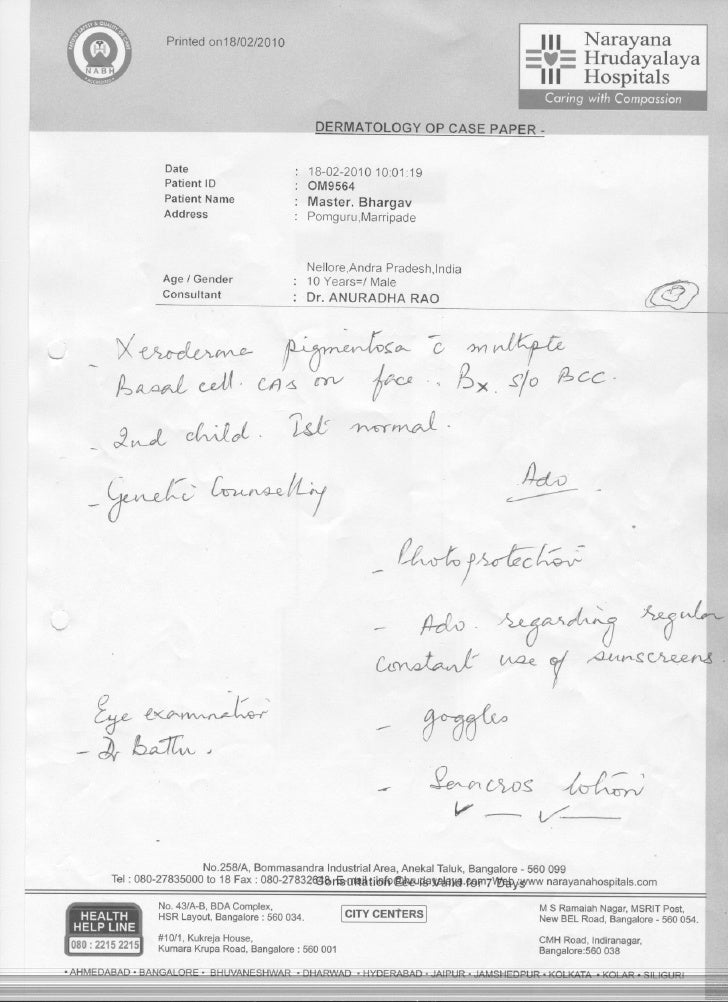 NABH
Printed on18/02/2010
Narayana
Hrudayalaya
Hospitals
Caring with Compassion
DERMATOLOGY OP CASE PAPER -
Date : 18-02-2010 10:01:19
Patient ID : OM9564
Patient Name : Master. Bhargav
Address : Pomguru,Marripade
Nellore,Andra Pradesh,India
Age / Gender : 10 Years=/ Male
Consultant : Dr. ANURADHA RAO
- Xeroderma pigmentosa c̄ multiple
Basal cell. CAs on face. Bx s/o BCC.
- 2nd child. Ist normal.
- Genetic Counselling
Adv
- Photoprotection
- Adv. regarding regular
constant use of sunscreens.
Eye examination
- Dr Battu.
- goggles
- lotion
No.258/A, Bommasandra Industrial Area, Anekal Taluk, Bangalore - 560 099
Tel : 080-27835000 to 18 Fax : 080-27832648 Consultation Fee is Valid for 7 Days www narayanahospitals.com
HEALTH
HELP LINE
080 : 2215 2215
No. 43/A-B, BDA Complex,
HSR Layout, Bangalore : 560 034.
#10/1, Kukreja House,
Kumara Krupa Road, Bangalore : 560 001
CITY CENTERS
M S Ramaiah Nagar, MSRIT Post,
New BEL Road, Bangalore - 560 054.
CMH Road, Indiranagar,
Bangalore:560 038
• AHMEDABAD • BANGALORE • BHUVANESHWAR • DHARWAD • HYDERABAD • JAIPUR • JAMSHEDPUR • KOLKATA • KOLAR • SILIGURI